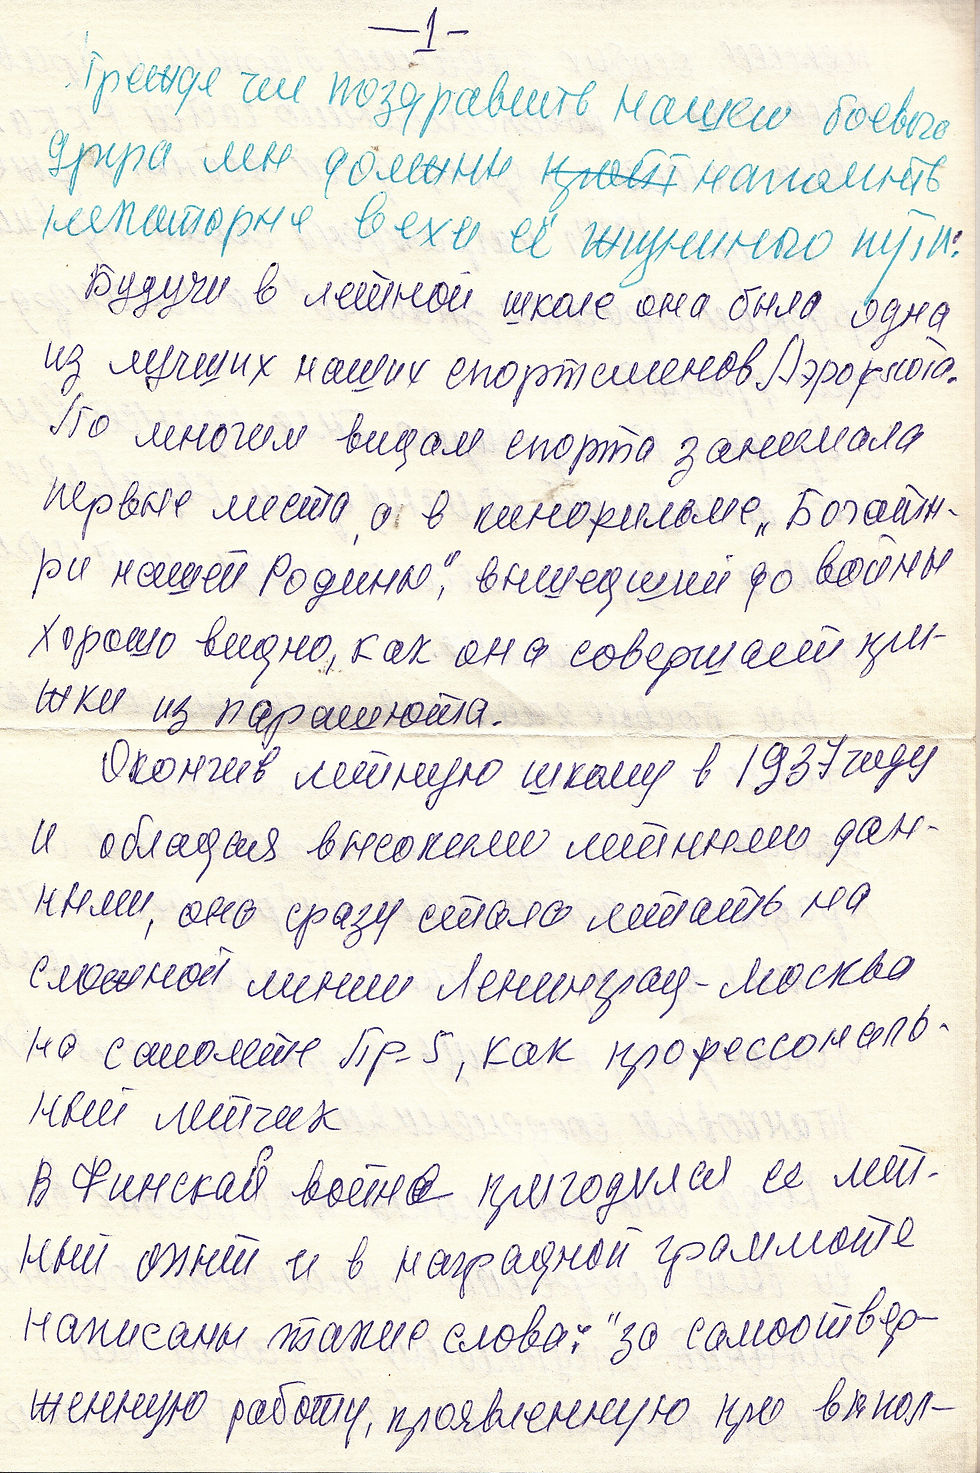 —1—
Прежде чем поздравить нашего боевого
друга мы должны напомнить
некоторые вехи её жизненного пути:
Будучи в летной школе она была одна
из лучших наших спортсменов Аэрофлота.
По многим видам спорта занимала
первые места, а в кинофильме „Богаты-
ри нашей Родины", вышедший до войны
хорошо видно, как она совершает пры-
жки из парашюта.
Окончив летную школу в 1937 году
и обладая высокими летными дан-
ными, она сразу стала летать на
сложной линии Ленинград-Москва
на самолете Пр-5, как профессональ-
ный летчик
В Финскай война пригодился ее лет-
ный опыт и в наградной граммоте
написаны такие слова: "за самоотвер-
женную работу, проявленную при выпол-